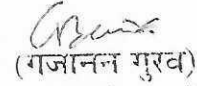 (गजानन गुरव)